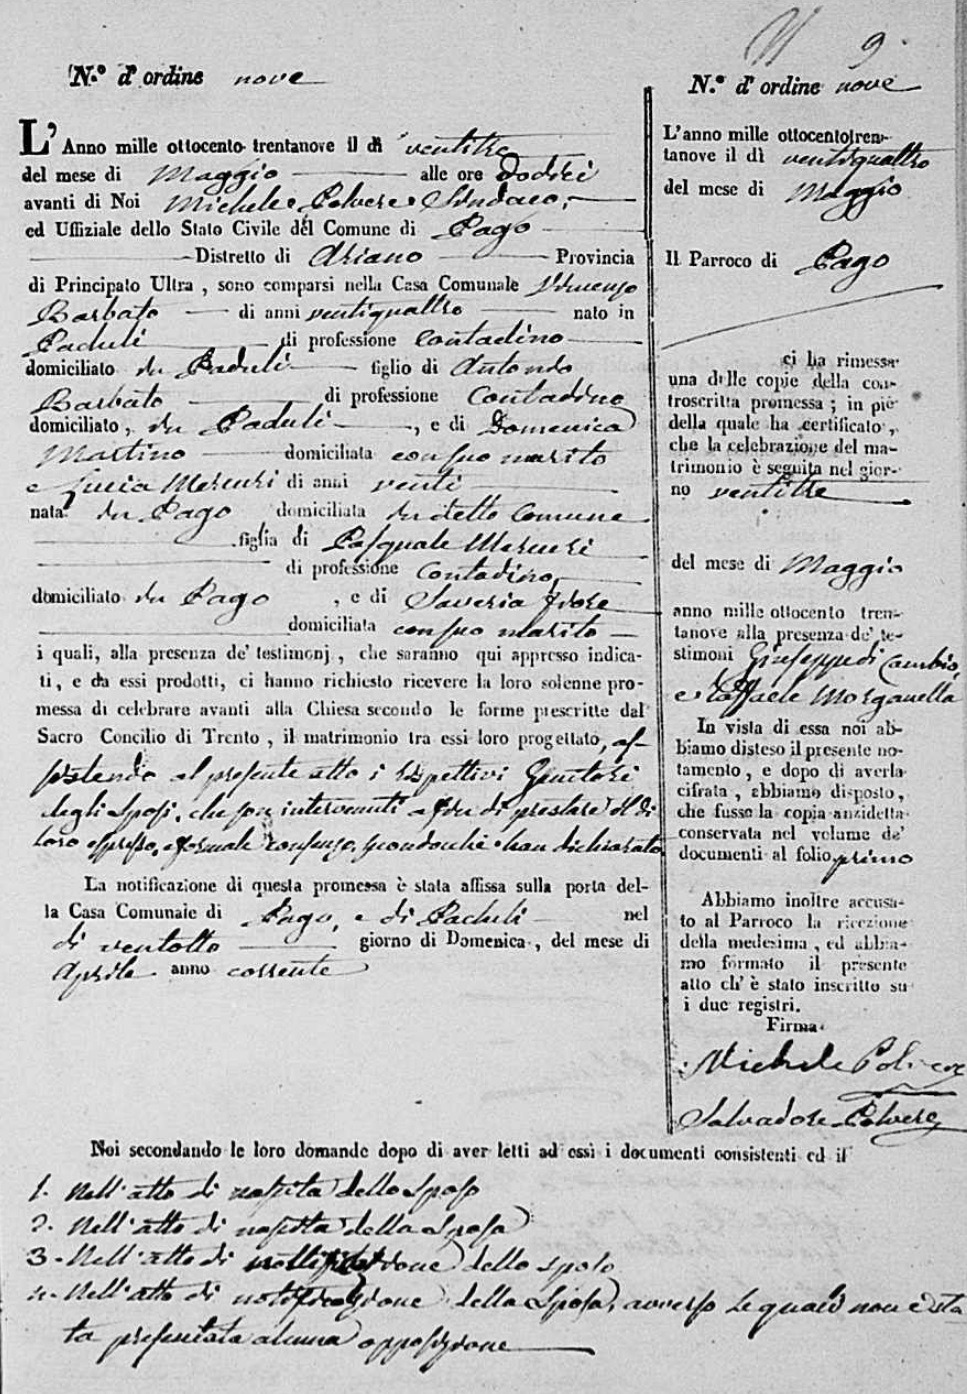 N.° d'ordine nove
L'Anno mille ottocento trentanove il dì ventitre
del mese di Maggio alle ore dodici
avanti di Noi Michele Polvere Sindaco,
ed Uffiziale dello Stato Civile del Comune di Pago
Distretto di Ariano Provincia
di Principato Ultra, sono comparsi nella Casa Comunale Vincenzo
Barbato di anni ventiquattro nato in
Paduli di professione Contadino
domiciliato in Paduli figlio di Antonio
Barbato di professione Contadino
domiciliato, in Paduli, e di Domenica
Martino domiciliata con suo marito
e Lucia Mercuri di anni venti
nata in Pago domiciliata in detto Comune
figlia di Pasquale Mercuri
di professione Contadino,
domiciliato in Pago, e di Saveria
domiciliata con suo marito
i quali, alla presenza de' testimonj, che saranno qui appresso indica-
ti, e da essi prodotti, ci hanno richiesto ricevere la loro solenne pro-
messa di celebrare avanti alla Chiesa secondo le forme prescritte dal
Sacro Concilio di Trento, il matrimonio tra essi loro progettato, as-
sistendo al presente atto i rispettivi Genitori
degli Sposi, che son intervenuti a fin di prestare il di
loro espresso, e formale consenso, siccome han dichiarato
La notificazione di questa promessa è stata affissa sulla porta del-
la Casa Comunale di Pago, e di Paduli nel
dì ventotto giorno di Domenica, del mese di
Aprile anno corrente
9
N.° d'ordine nove
L'anno mille ottocentotren-
tanove il dì ventiquattro
del mese di Maggio
Il Parroco di Pago
ci ha rimesse
una delle copie della con-
troscritta promessa; in piè
della quale ha certificato,
che la celebrazione del ma-
trimonio è seguita nel gior-
no ventitre
del mese di Maggio
anno mille ottocento tren-
tanove alla presenza de' te-
stimoni Giuseppe di Cambio,
e Raffaele Morganella
In vista di essa noi ab-
biamo disteso il presente no-
tamento, e dopo di averla
cifrata, abbiamo disposto,
che fusse la copia anzidetta
conservata nel volume de'
documenti al folio primo
Abbiamo inoltre accusa-
to al Parroco la ricezione
della medesima, ed abbia-
mo formato il presente
atto ch'è stato inscritto su
i due registri.
Firma
Michele Polvere
Salvadore Polvere
Noi secondando le loro domande dopo di aver letti ad essi i documenti consistenti ed il
1. Nell'atto di nascita dello Sposo
2. Nell'atto di nascita della Sposa
3. Nell'atto di notificazione dello sposo
4. Nell'atto di notificazione della Sposa, avverso le quali non è sta
ta presentata alcuna opposizione